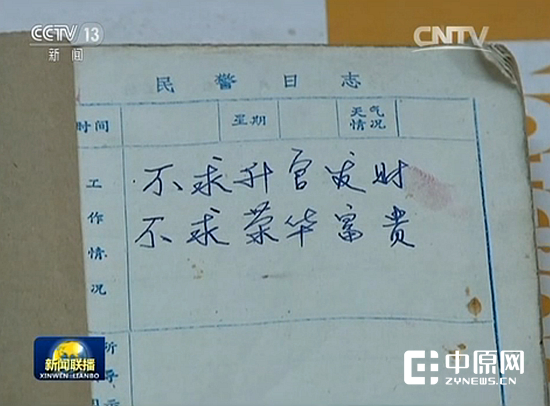 CCTV 13
新闻
CNTV
民警日志
时间 星期 天气情况
工作情况
不求升官发财
不求荣华富贵
所
导
示
新闻联播
XINWEN LIANBO
中原网
ZYNEWS.CN